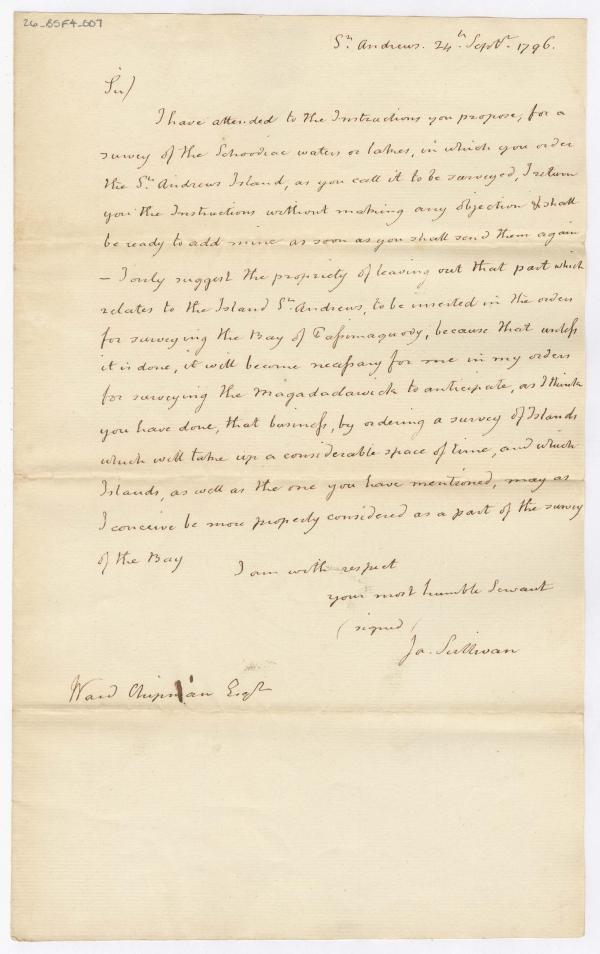 26_B5F4_007
St. Andrews. 24th Septr. 1796.
Sir)
I have attended to the Instructions you propose, for a
survey of the Schoodiac waters or lakes, in which you order
the St. Andrews Island, as you call it to be surveyed, I return
you the Instructions without making any objection & shall
be ready to add mine as soon as you shall send them again
– I only suggest the propriety of leaving out that part which
relates to the Island St. Andrews, to be inserted in the orders
for surveying the Bay of Passimaquody, because that unless
it is done, it will become necessary for me in my orders
for surveying the Magadadawick to anticipate, as I think
you have done, that business, by ordering a survey of Islands
which will take up a considerable space of time, and which
Islands, as well as the one you have mentioned, may as
I conceive be more properly considered as a part of the survey
of the Bay
I am with respect
your most humble Servant
(signed)
Ja. Sullivan
Ward Chipman Esqr